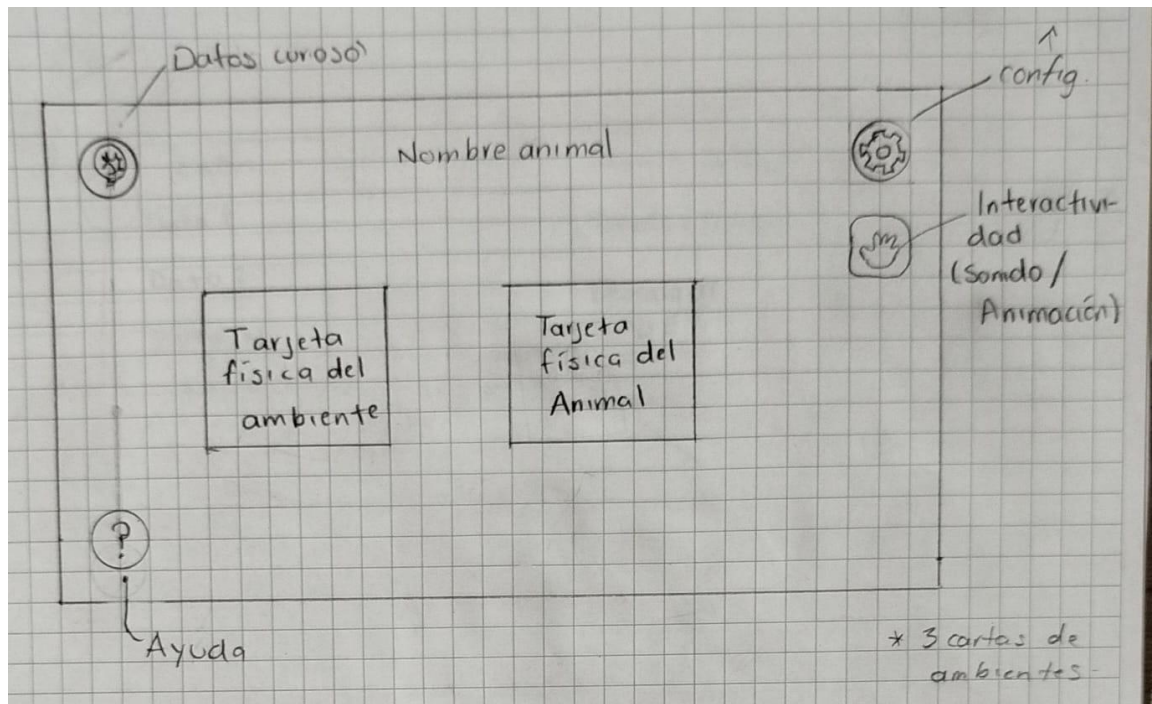 Datos curoso
config.
Nombre animal
Interactivi-
dad
(Sonido /
Animación)
Tarjeta
física del
ambiente
Tarjeta
física del
Animal
?
Ayuda
* 3 cartas de
ambientes